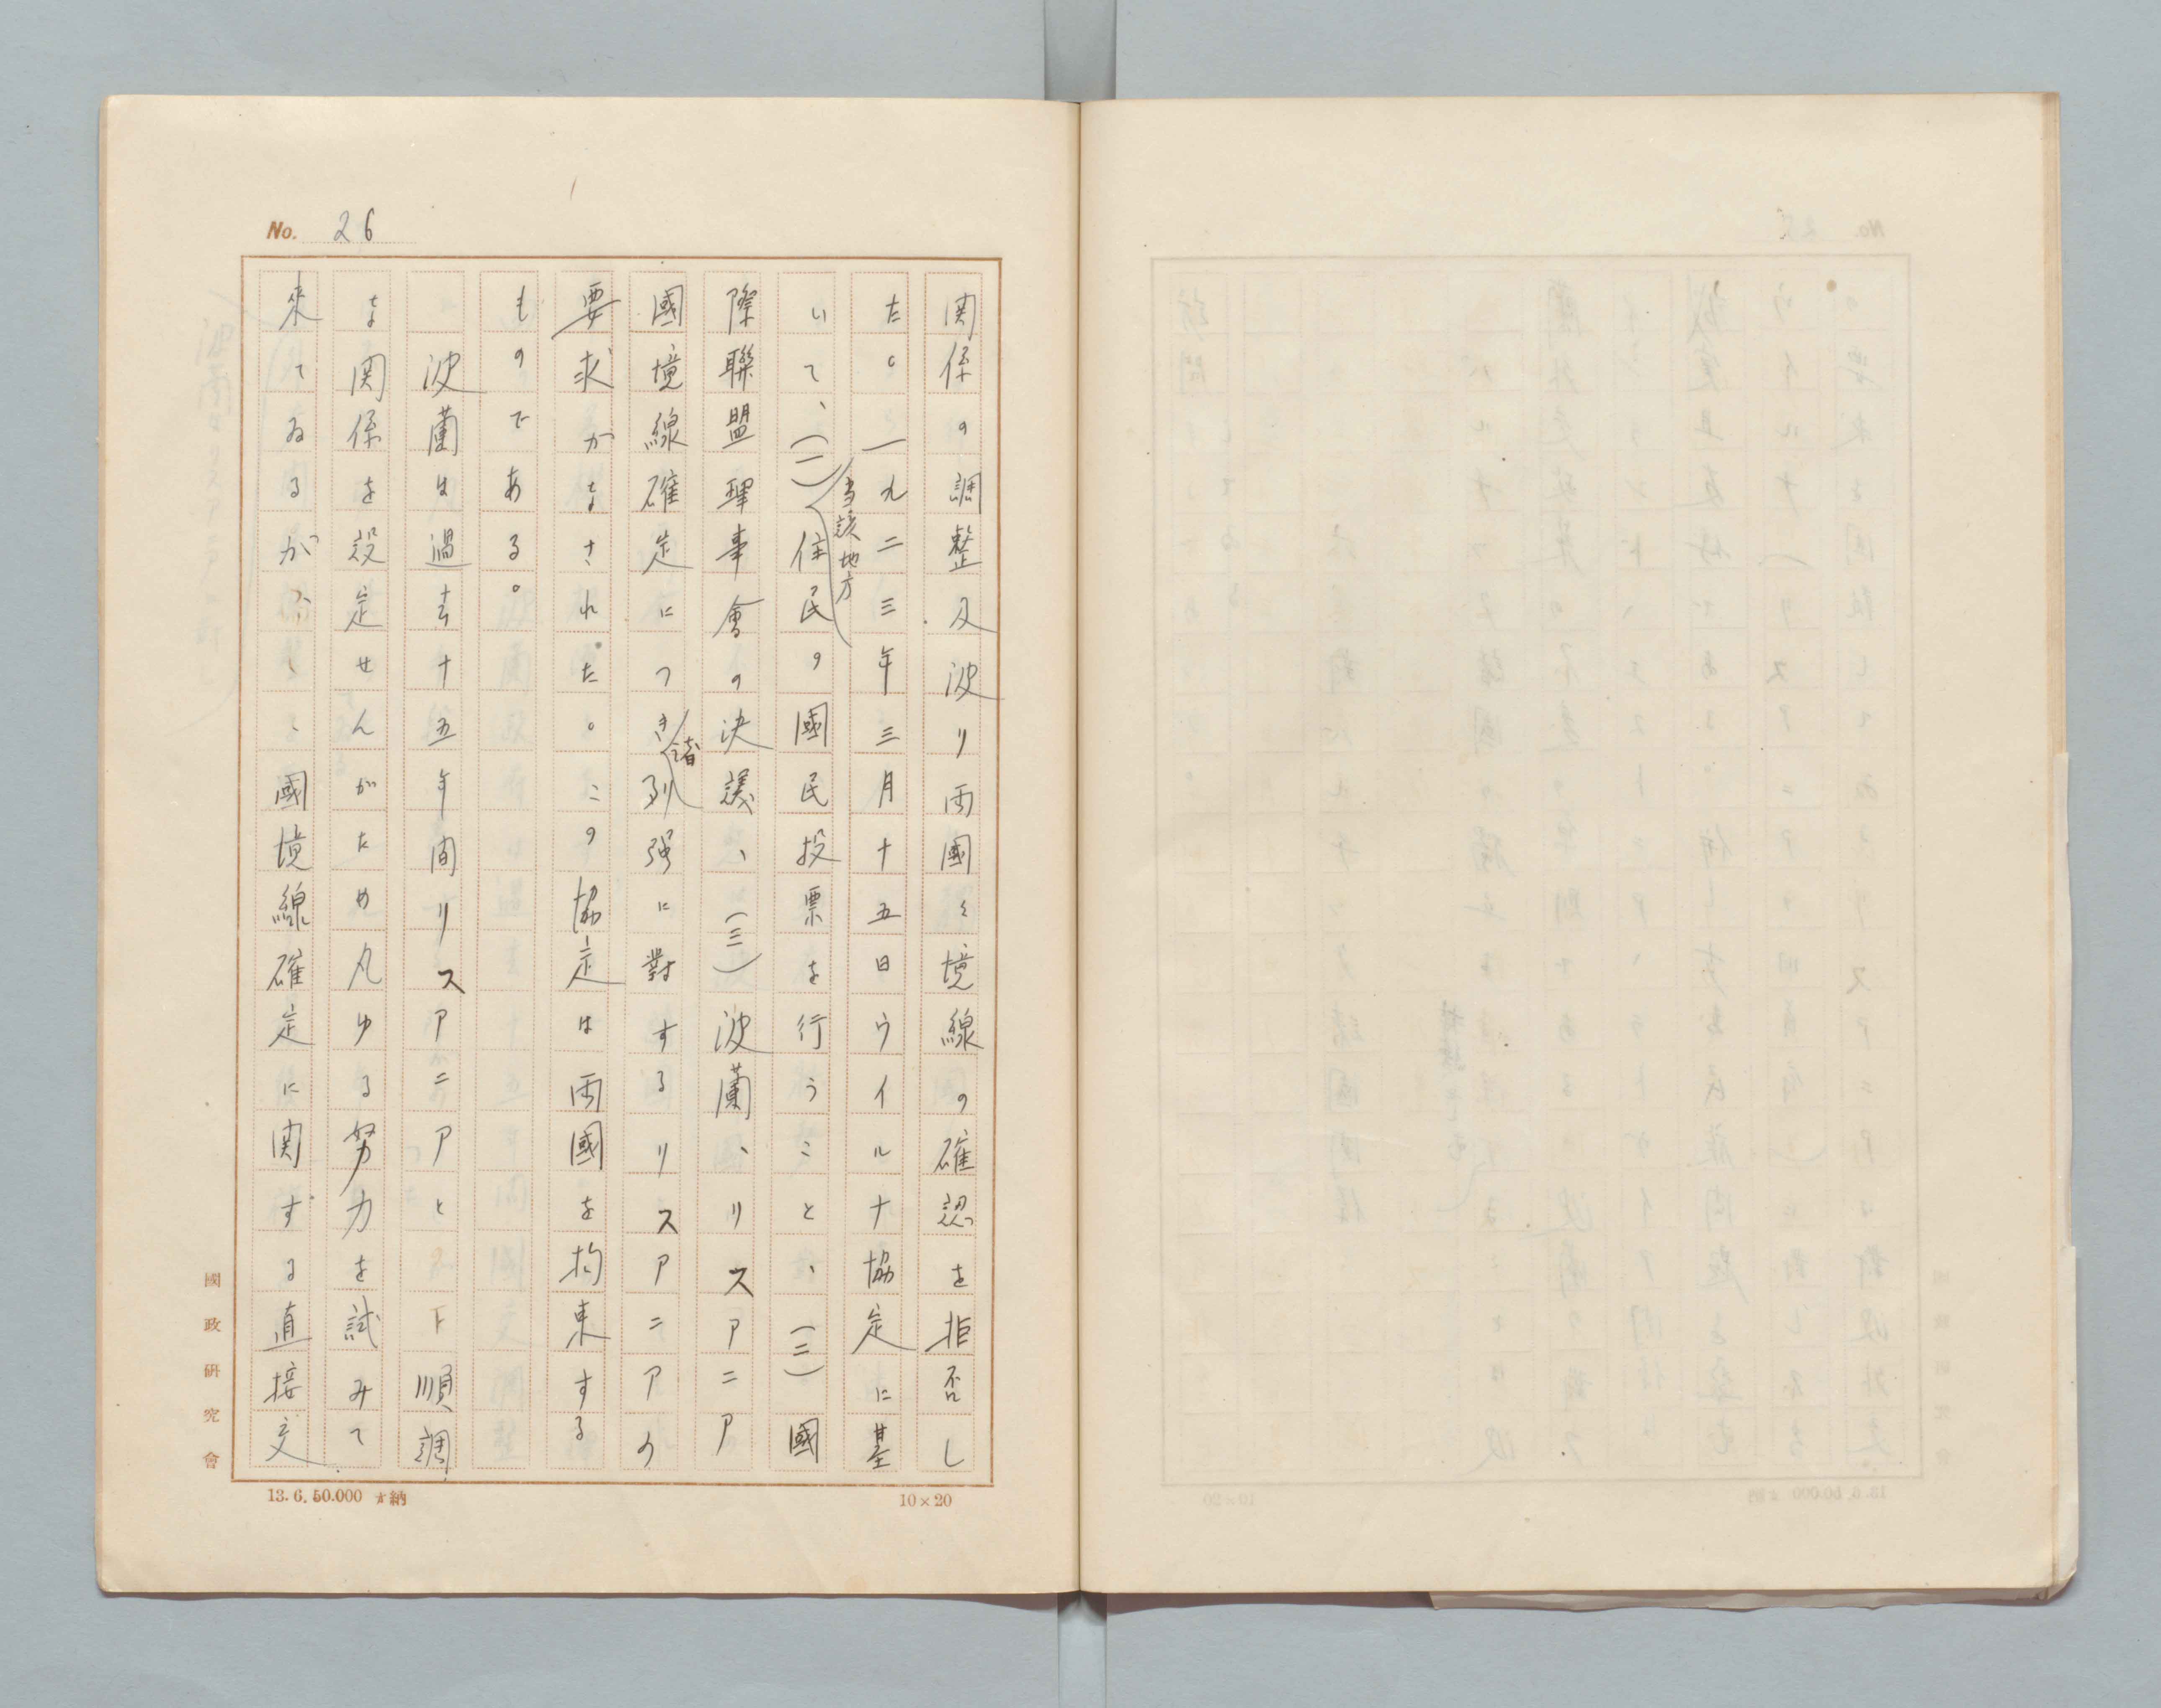 No. 26
関係の調整及波リ両國々境線の確認を拒否し
た。一九二三年三月十五日ウイルナ協定に基
いて、(一)当該地方住民の國民投票を行うこと、(二)國
際聯盟理事會の決議、(三)波蘭、リスアニア
國境線確定につき諸列强に對するリスアニアの
要求がなされた。この協定は両國を拘束する
ものである。
波蘭は過去十五年間リスアニアと 順調
な関係を設定せんがため凡ゆる努力を試みて
來てゐるが、國境線確定に関する直接交
國政研究會
13.6.50.000 納
10×20